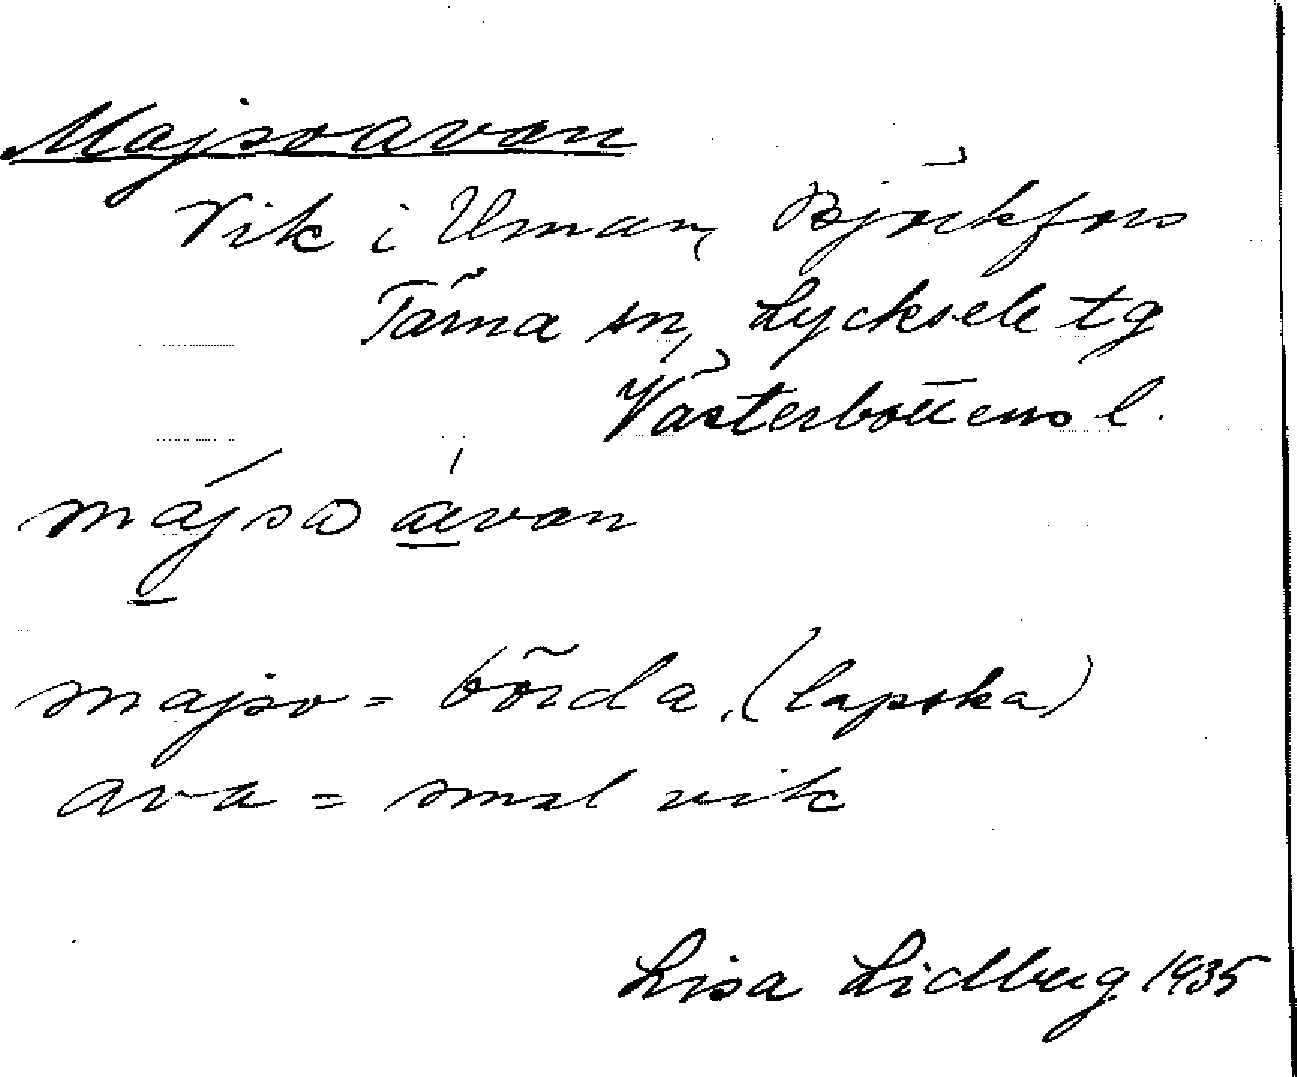 Majsoavan
Vik i Uman, Björkfors
Tärna sn, Lycksele tg
Västerbottens l.
májso ávan
majso = börda, (lapska)
ava = smal vik
Lisa Lidberg 1935